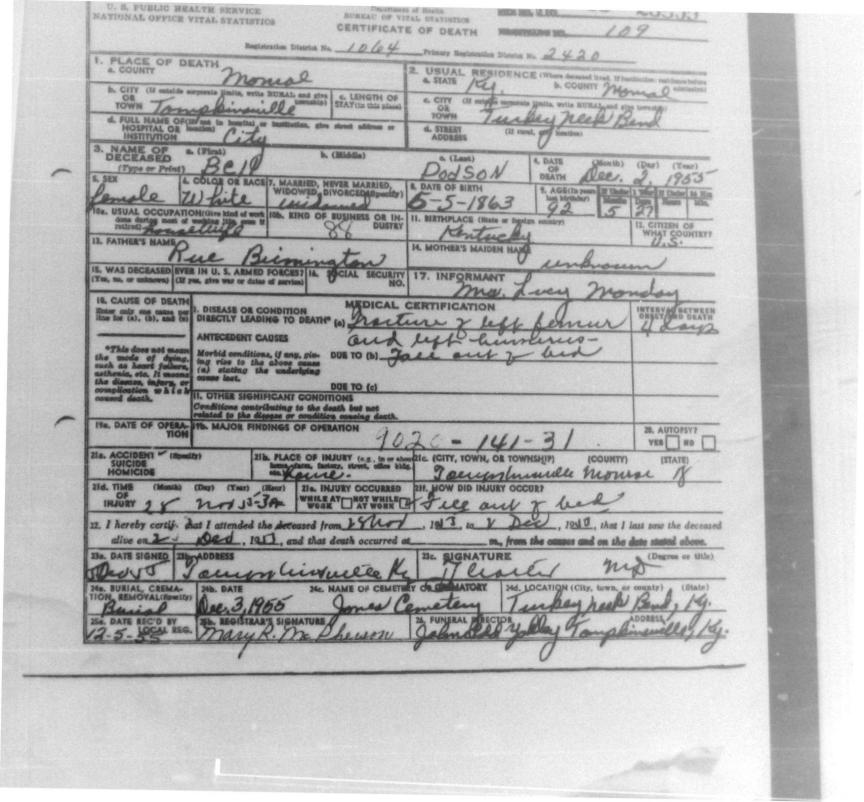 U. S. PUBLIC HEALTH SERVICE
NATIONAL OFFICE VITAL STATISTICS
Department of Health
BUREAU OF VITAL STATISTICS
CERTIFICATE OF DEATH
109
Registration District No. 1064 Primary Registration District No. 2420
1. PLACE OF DEATH
a. COUNTY Monroe
2. USUAL RESIDENCE (Where deceased lived. If institution: residence before admission)
a. STATE Ky. b. COUNTY Monroe
b. CITY (If outside corporate limits, write RURAL and give township) OR TOWN Tompkinsville
c. LENGTH OF STAY (in this place)
c. CITY (If outside corporate limits, write RURAL and give township) OR TOWN Turkey Neck Bend
d. FULL NAME OF (If not in hospital or institution, give street address or location) HOSPITAL OR INSTITUTION City
d. STREET ADDRESS (If rural, give location)
3. NAME OF DECEASED (Type or Print) a. (First) Bell b. (Middle) c. (Last) Dodson
4. DATE OF DEATH (Month) (Day) (Year) Dec. 2, 1955
5. SEX female
6. COLOR OR RACE White
7. MARRIED, NEVER MARRIED, WIDOWED, DIVORCED (Specify) widowed
8. DATE OF BIRTH 5-5-1863
9. AGE (In years last birthday) 92 If Under 1 Year Months 5 Days 27 If Under 24 Hrs. Hours Min.
10a. USUAL OCCUPATION (Give kind of work done during most of working life, even if retired) housewife
10b. KIND OF BUSINESS OR INDUSTRY 88
11. BIRTHPLACE (State or foreign country) Kentucky
12. CITIZEN OF WHAT COUNTRY? U.S.
13. FATHER'S NAME Rue
14. MOTHER'S MAIDEN NAME unknown
15. WAS DECEASED EVER IN U. S. ARMED FORCES? (Yes, no, or unknown) (If yes, give war or dates of service)
16. SOCIAL SECURITY NO.
17. INFORMANT Mrs. Lucy Monday
18. CAUSE OF DEATH
Enter only one cause per line for (a), (b), and (c)
MEDICAL CERTIFICATION
INTERVAL BETWEEN ONSET AND DEATH
I. DISEASE OR CONDITION DIRECTLY LEADING TO DEATH* (a) Fracture of left femur 4 days
and left humerus-
*This does not mean the mode of dying, such as heart failure, asthenia, etc. It means the disease, injury, or complication which caused death.
ANTECEDENT CAUSES
Morbid conditions, if any, giving rise to the above cause (a) stating the underlying cause last.
DUE TO (b) Fall out of bed
DUE TO (c)
II. OTHER SIGNIFICANT CONDITIONS
Conditions contributing to the death but not related to the disease or condition causing death.
19a. DATE OF OPERATION
19b. MAJOR FINDINGS OF OPERATION
9020-141-31
20. AUTOPSY?
YES NO
21a. ACCIDENT (Specify) SUICIDE HOMICIDE
21b. PLACE OF INJURY (e.g., in or about home, farm, factory, street, office bldg., etc.) home.
21c. (CITY, TOWN, OR TOWNSHIP) (COUNTY) (STATE)
Tompkinsville Monroe Ky
21d. TIME OF INJURY (Month) (Day) (Year) (Hour) 28 Nov
21e. INJURY OCCURRED
WHILE AT WORK NOT WHILE AT WORK
21f. HOW DID INJURY OCCUR?
Fell out of bed
22. I hereby certify that I attended the deceased from 28 Nov, to 2 Dec, that I last saw the deceased
alive on 2 Dec, and that death occurred at m., from the causes and on the date stated above.
23a. DATE SIGNED
23b. ADDRESS Tompkinsville Ky
23c. SIGNATURE (Degree or title) MD
24a. BURIAL, CREMATION, REMOVAL (Specify) Burial
24b. DATE Dec. 3, 1955
24c. NAME OF CEMETERY OR CREMATORY Jones Cemetery
24d. LOCATION (City, town, or county) (State) Turkey Neck Bend, Ky.
25a. DATE REC'D BY LOCAL REG. 12-5-55
25b. REGISTRAR'S SIGNATURE Mary R. McPherson
26. FUNERAL DIRECTOR ADDRESS Tompkinsville, Ky.